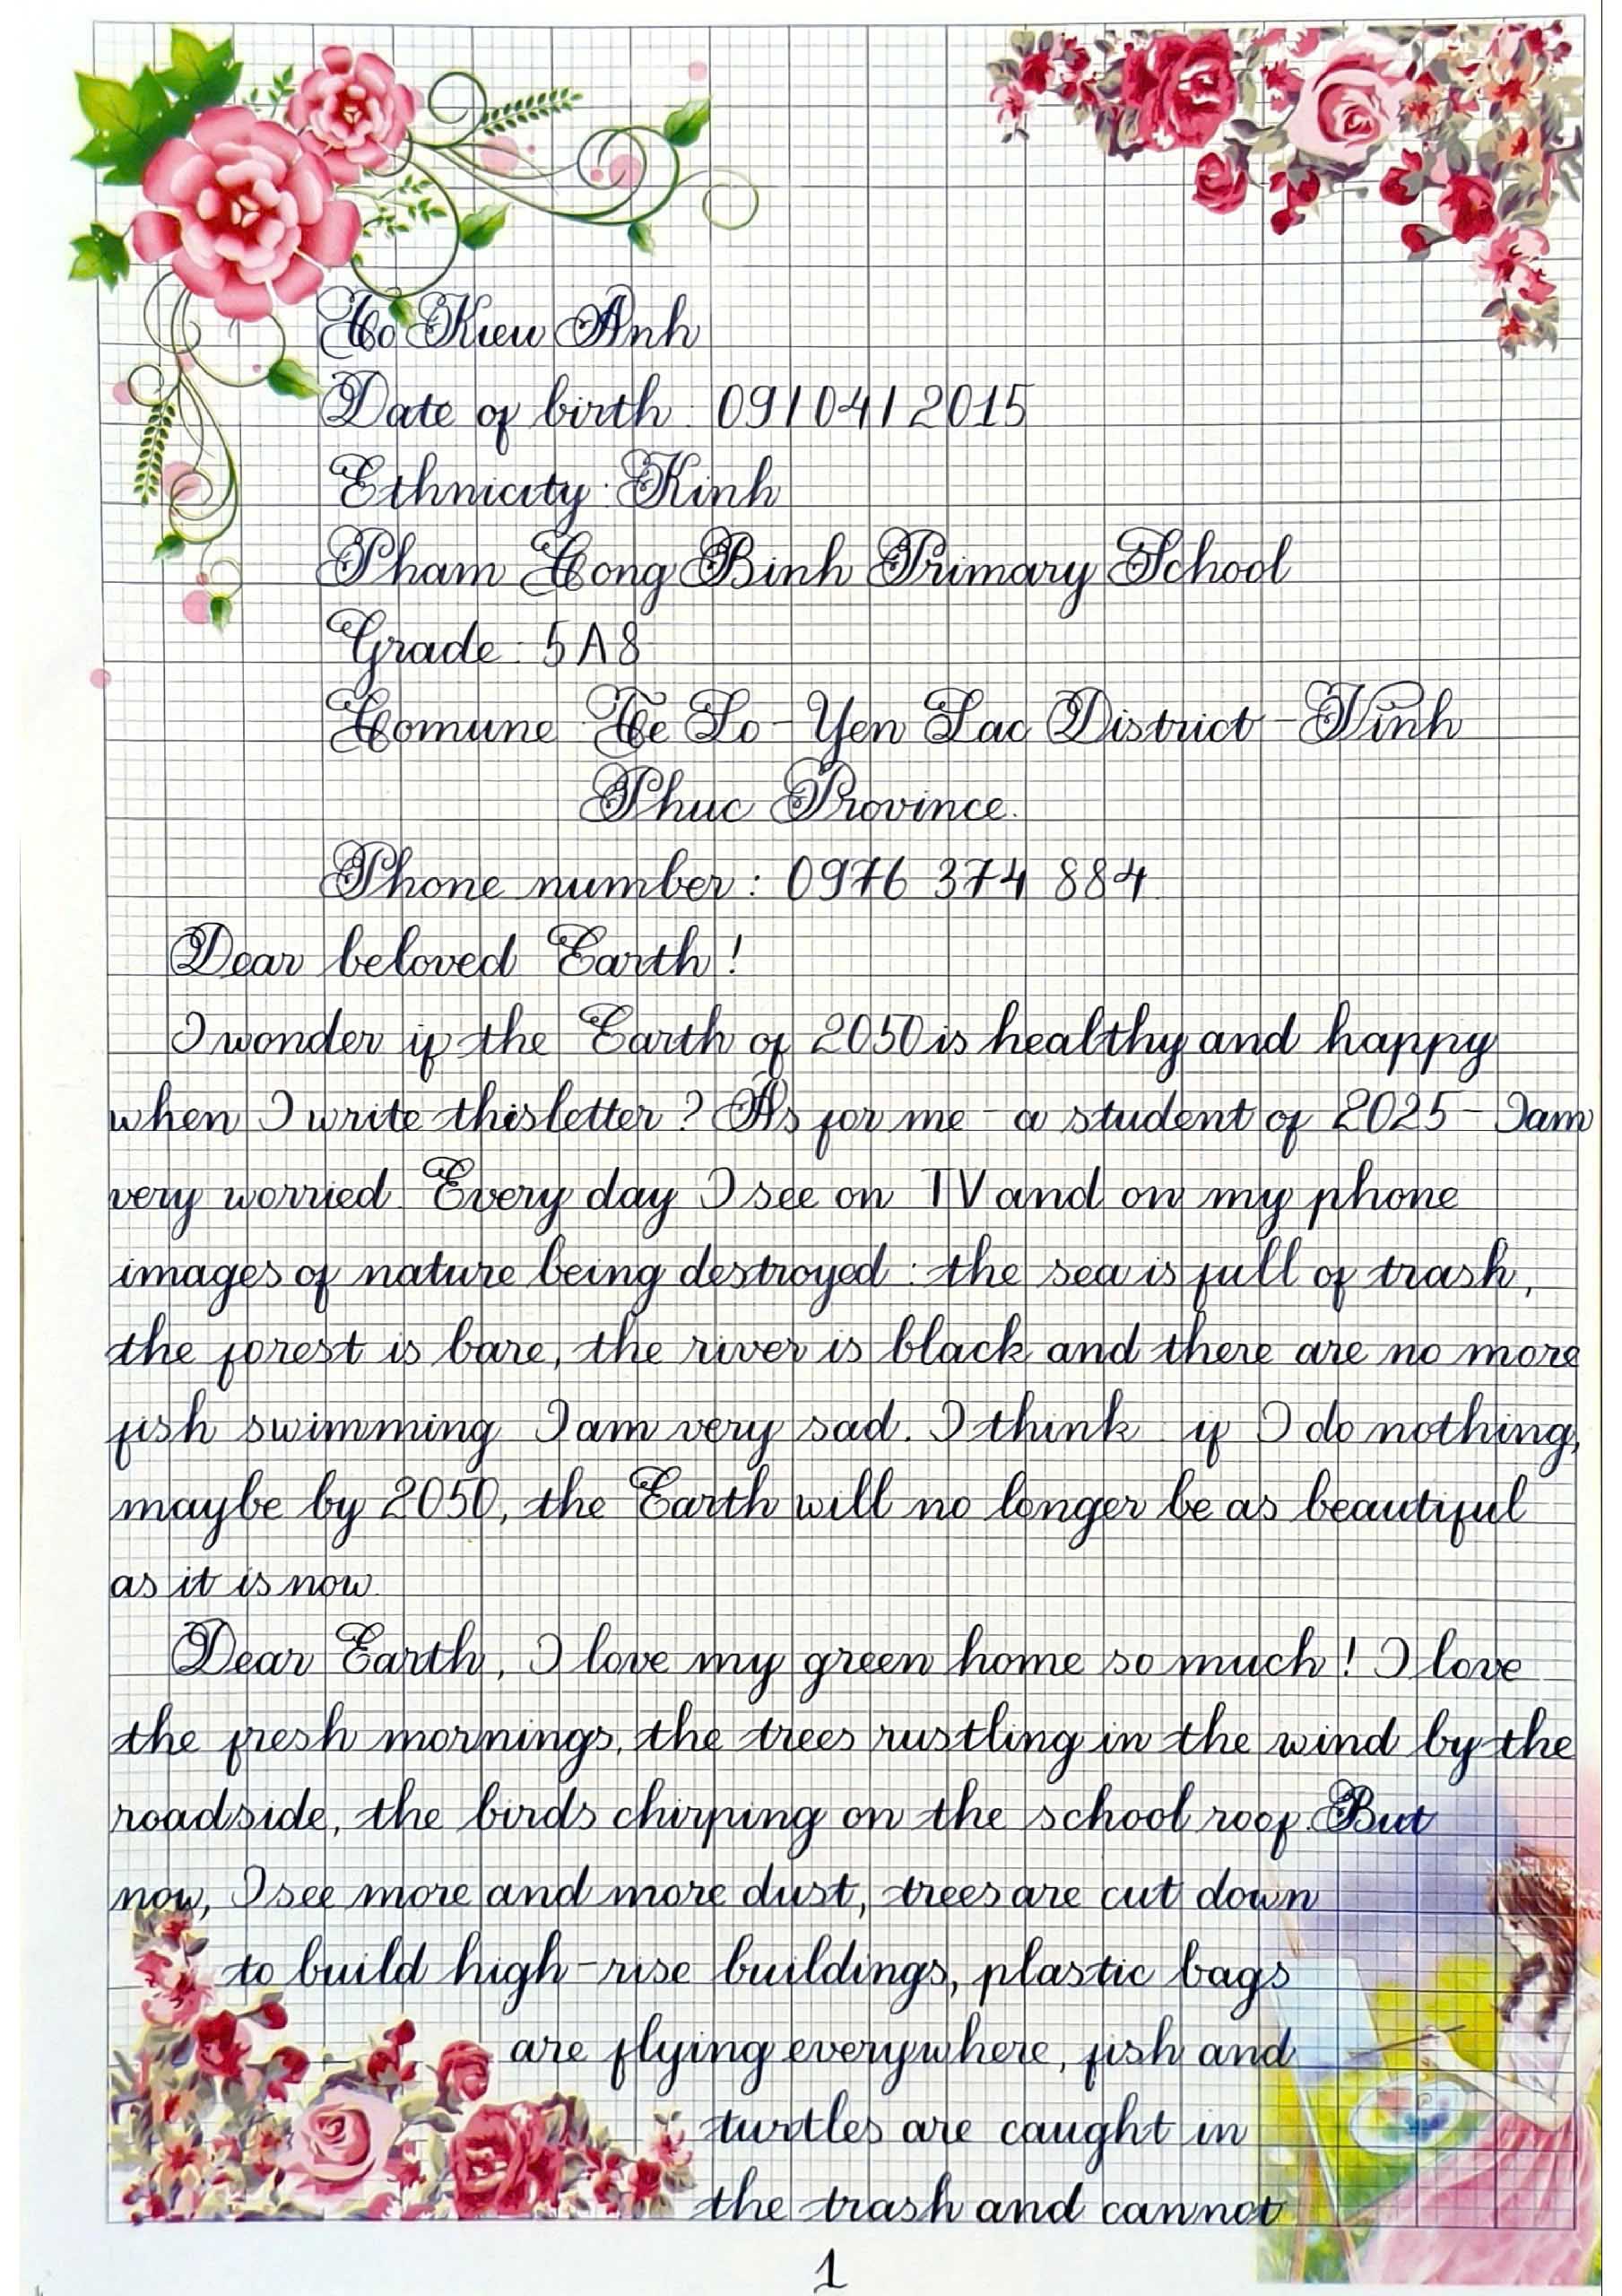 Ho Kieu Anh
Date of birth : 09/04/2015
Ethnicity : Kinh
Pham Hong Binh Primary School
Grade : 5A8
Comune Te Lo - Yen Lac District - Vinh
Phuc Province.
Phone number : 0976 374 884
Dear beloved Earth !
I wonder if the Earth of 2050 is healthy and happy
when I write this letter ? As for me - a student of 2025 - I am
very worried. Every day I see on TV and on my phone
images of nature being destroyed : the sea is full of trash,
the forest is bare, the river is black and there are no more
fish swimming. I am very sad. I think if I do nothing,
maybe by 2050, the Earth will no longer be as beautiful
as it is now.
Dear Earth, I love my green home so much ! I love
the fresh mornings, the trees rustling in the wind by the
roadside, the birds chirping on the school roof. But
now, I see more and more dust, trees are cut down
to build high-rise buildings, plastic bags
are flying everywhere, fish and
turtles are caught in
the trash and cannot
1